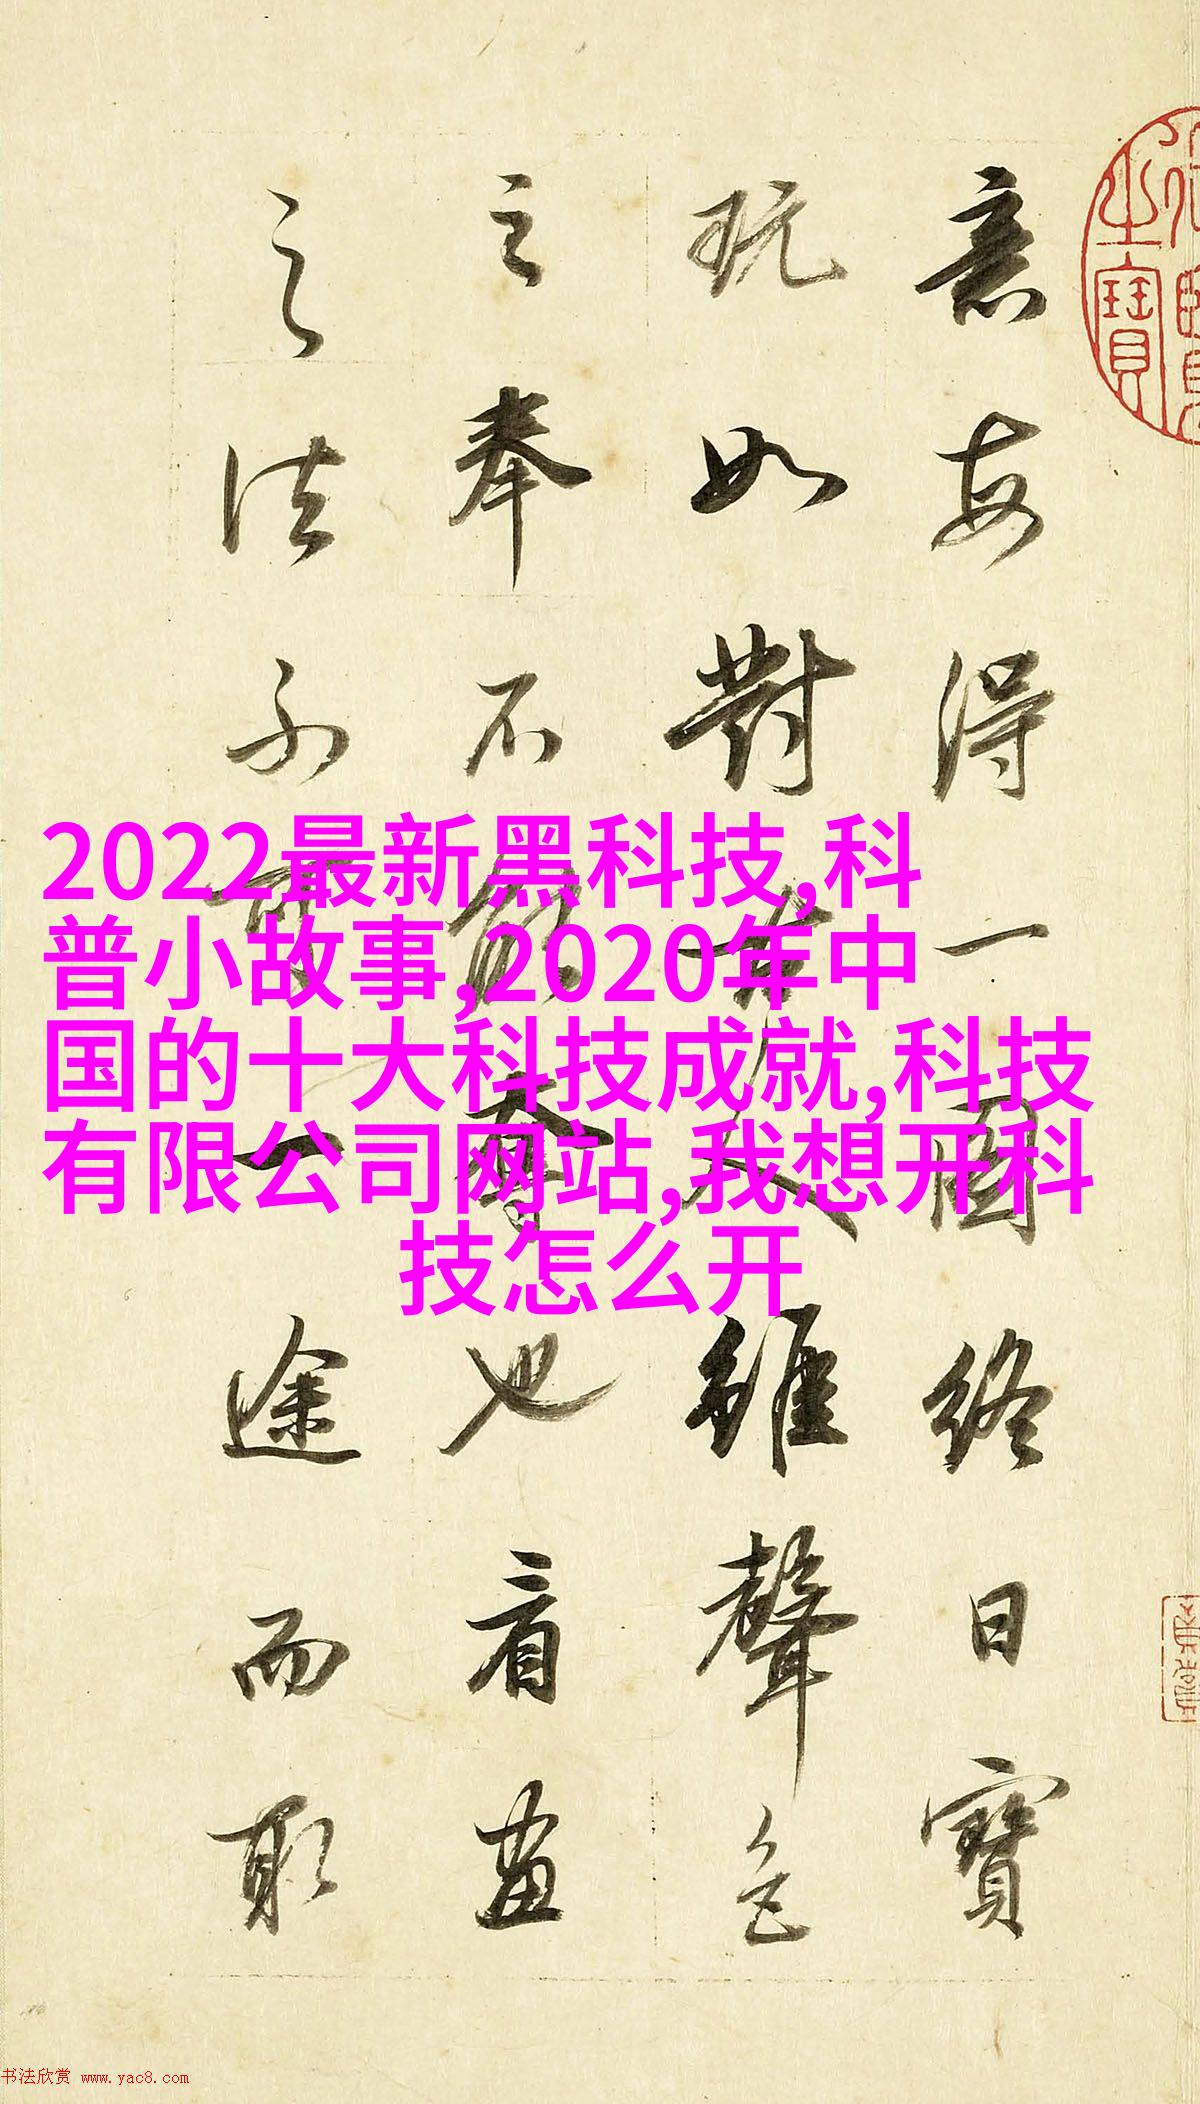 意每得一圖終日寶
玩如對古人雖聲色
之奉不能奪也看畫
之法不可一途而取
之寶
2022最新黑科技,科
普小故事,2020年中
国的十大科技成就,科技
有限公司网站,我想开科
技怎么开
书法欣赏 www.yac8.com